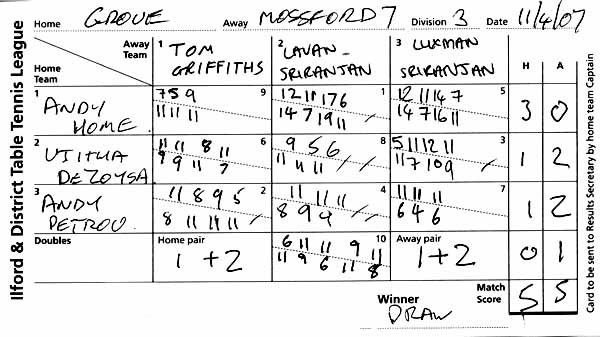 Ilford & District Table Tennis League
Home GROVE Away MOSSFORD 7 Division 3 Date 11/4/07
Away Team
Home Team
1 TOM GRIFFITHS
2 LAVAN SRIRANJAN
3 LUXMAN SRIRANJAN
H A
1 ANDY HOME
9
7 5 9
11 11 11
1
12 11 17 6
14 7 19 11
5
12 11 14 7
14 7 16 11
3 0
2
6
11 11 8 11
9 9 11 7
8
9 5 6
11 11 11
3
5 11 12 11
11 7 10 9
1 2
3 ANDY PETROU
2
11 8 9 5
8 11 11 11
4
11 11 11
8 9 4
7
11 11 11
6 4 6
1 2
Doubles
Home pair
1 + 2
10
6 11 11 9 11
11 9 6 11 8
Away pair
1 + 2
0 1
Winner DRAW
Match Score 5 5
Card to be sent to Results Secretary by home team Captain